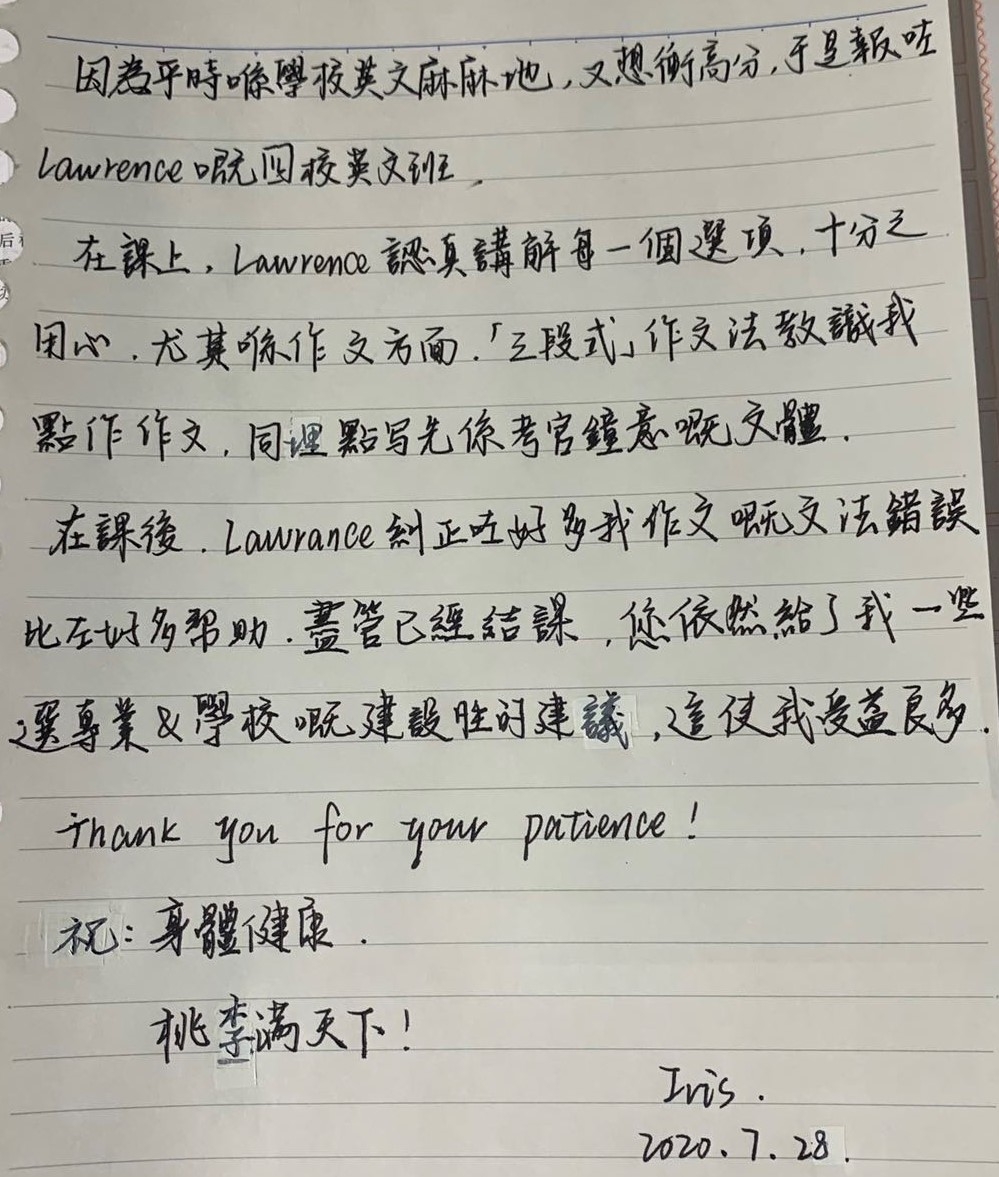 因為平時喺學校英文麻麻地,又想衝高分,于是報咗
Lawrence嘅四校英文班,
在課上,Lawrence認真講解每一個選項,十分之
用心.尤其喺作文方面.「三段式」作文法教識我
點作作文,同埋點写先係考官鐘意嘅文體.
在課後.Lawrance糾正咗好多我作文嘅文法錯誤
比左好多帮助.盡管已經结課,您依然給了我一些
選專業&學校嘅建設性的建議,這使我受益良多.
Thank you for your patience!
祝:身體健康.
桃李满天下!
Iris.
2020.7.28.
后